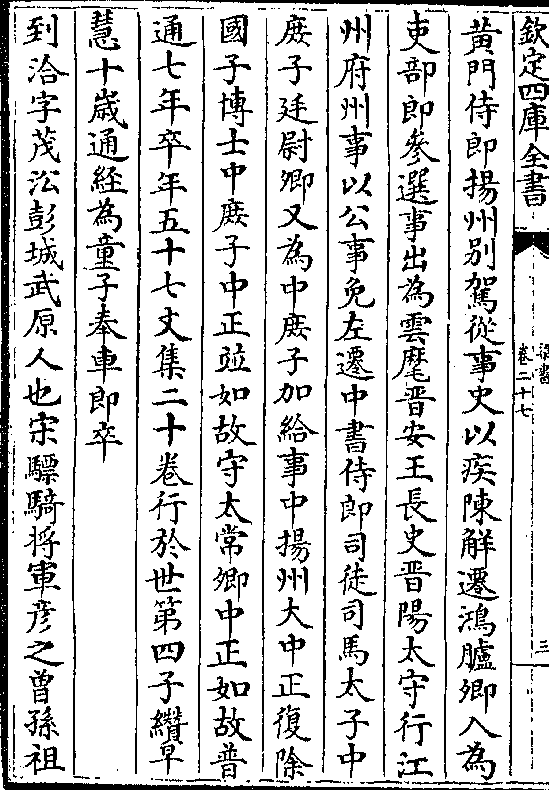 欽定四庫全書
梁書
卷二十七
三
黄門侍郎揚州别駕從事史以疾陳解遷鴻臚卿入為
吏部郎參選事出為雲麾晉安王長史晉陽太守行江
州府州事以公事免左遷中書侍郎司徒司馬太子中
庶子廷尉卿又為中庶子加給事中揚州大中正復除
國子博士中庶子中正竝如故守太常卿中正如故普
通七年卒年五十七文集二十卷行於世第四子纘早
慧十歲通經為童子奉車郎卒
到洽字茂㳂彭城武原人也宋驃騎將軍彦之曽孫祖